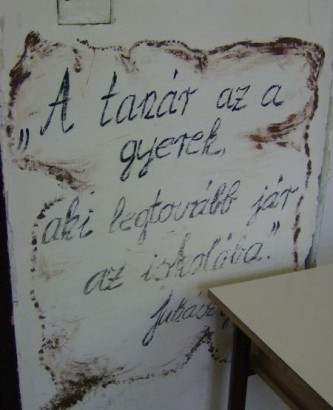 „A tanár az a
gyerek,
aki legtovább jár
az iskolába."